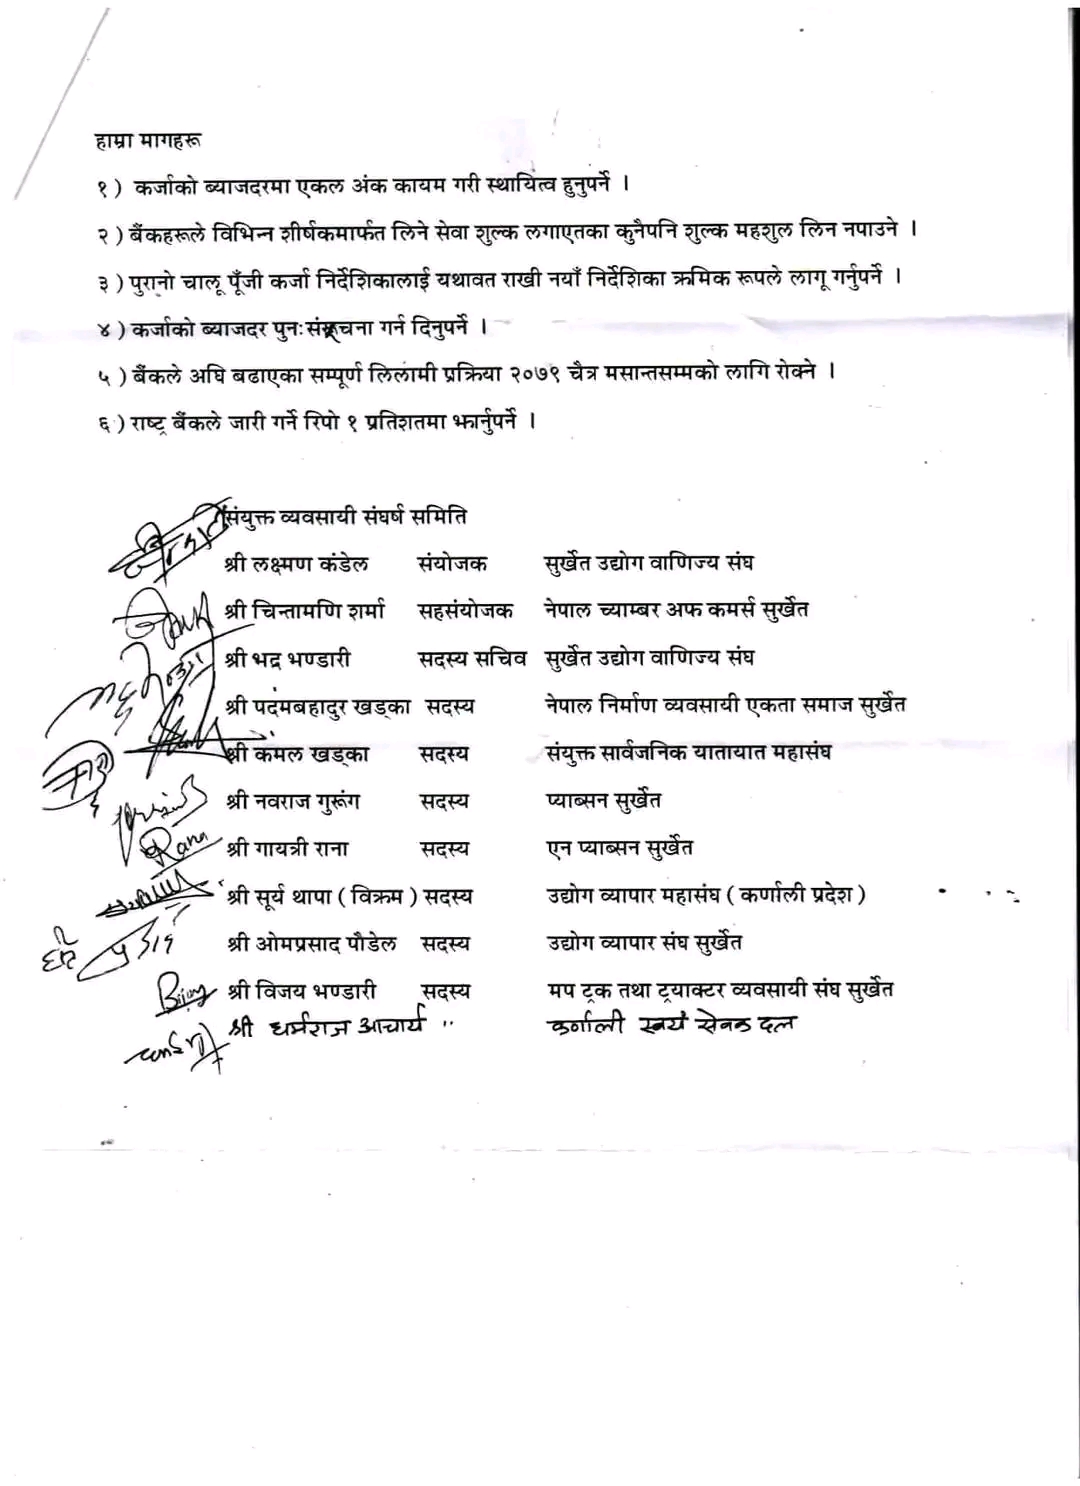 हाम्रा मागहरू
१) कर्जाको ब्याजदरमा एकल अंक कायम गरी स्थायित्व हुनुपर्ने ।
२) बैंकहरूले विभिन्न शीर्षकमार्फत लिने सेवा शुल्क लगाएतका कुनैपनि शुल्क महशुल लिन नपाउने ।
३) पुरानो चालू पूँजी कर्जा निर्देशिकालाई यथावत राखी नयाँ निर्देशिका क्रमिक रूपले लागू गर्नुपर्ने ।
४) कर्जाको ब्याजदर पुनःसंरचना गर्न दिनुपर्ने ।
५) बैंकले अघि बढाएका सम्पूर्ण लिलामी प्रक्रिया २०७९ चैत्र मसान्तसम्मको लागि रोक्ने ।
६) राष्ट्र बैंकले जारी गर्ने रिपो १ प्रतिशतमा झार्नुपर्ने ।
संयुक्त व्यवसायी संघर्ष समिति
श्री लक्ष्मण कंडेल संयोजक सुर्खेत उद्योग वाणिज्य संघ
श्री चिन्तामणि शर्मा सहसंयोजक नेपाल च्याम्बर अफ कमर्स सुर्खेत
श्री भद्र भण्डारी सदस्य सचिव सुर्खेत उद्योग वाणिज्य संघ
श्री पदंमबहादुर खड्का सदस्य नेपाल निर्माण व्यवसायी एकता समाज सुर्खेत
श्री कमल खड्का सदस्य संयुक्त सार्वजनिक यातायात महासंघ
श्री नवराज गुरूंग सदस्य प्याब्सन सुर्खेत
Rana श्री गायत्री राना सदस्य एन प्याब्सन सुर्खेत
श्री सूर्य थापा (विक्रम) सदस्य उद्योग व्यापार महासंघ (कर्णाली प्रदेश)
श्री ओमप्रसाद पौडेल सदस्य उद्योग व्यापार संघ सुर्खेत
Bijay श्री विजय भण्डारी सदस्य मप ट्रक तथा ट्रयाक्टर व्यवसायी संघ सुर्खेत
श्री धर्मराज आचार्य " कर्णाली स्वयं सेवक दल